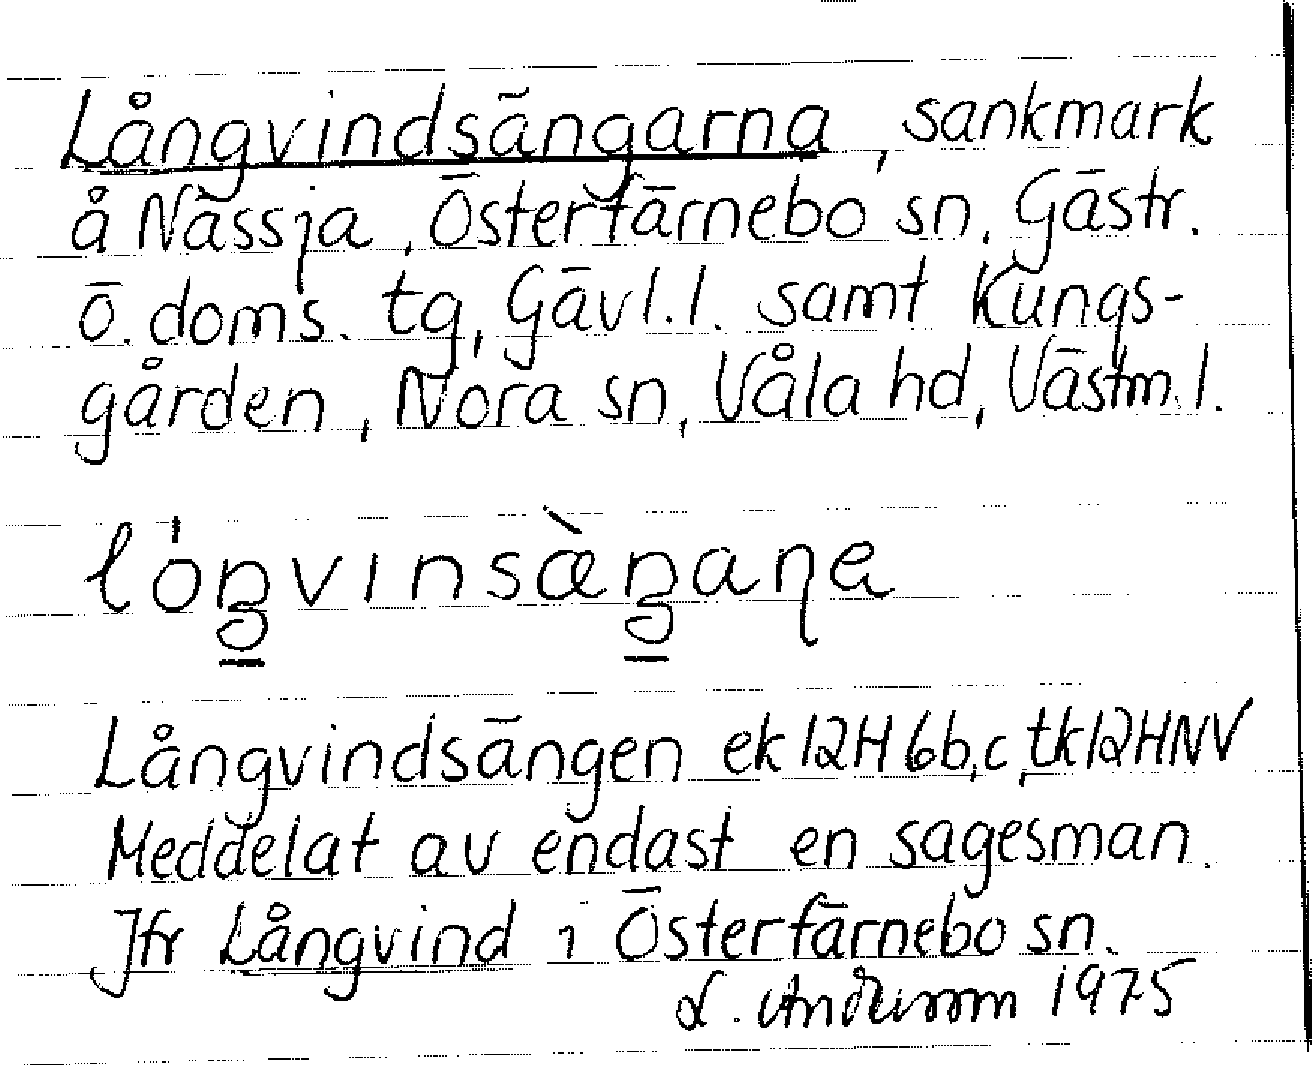 Långvindsängarna, sankmark
å Nässja, Österfärnebo sn, Gästr.
ö. doms. tg, Gävl.l. samt Kungs-
gården, Nora sn, Våla hd, Västm.l.
lóŋvinsæ̀ŋaɳa
Långvindsängen ek 12H 6b,c, tk 12HNV
Meddelat av endast en sagesman.
Jfr Långvind i Österfärnebo sn.
L. Andersson 1975